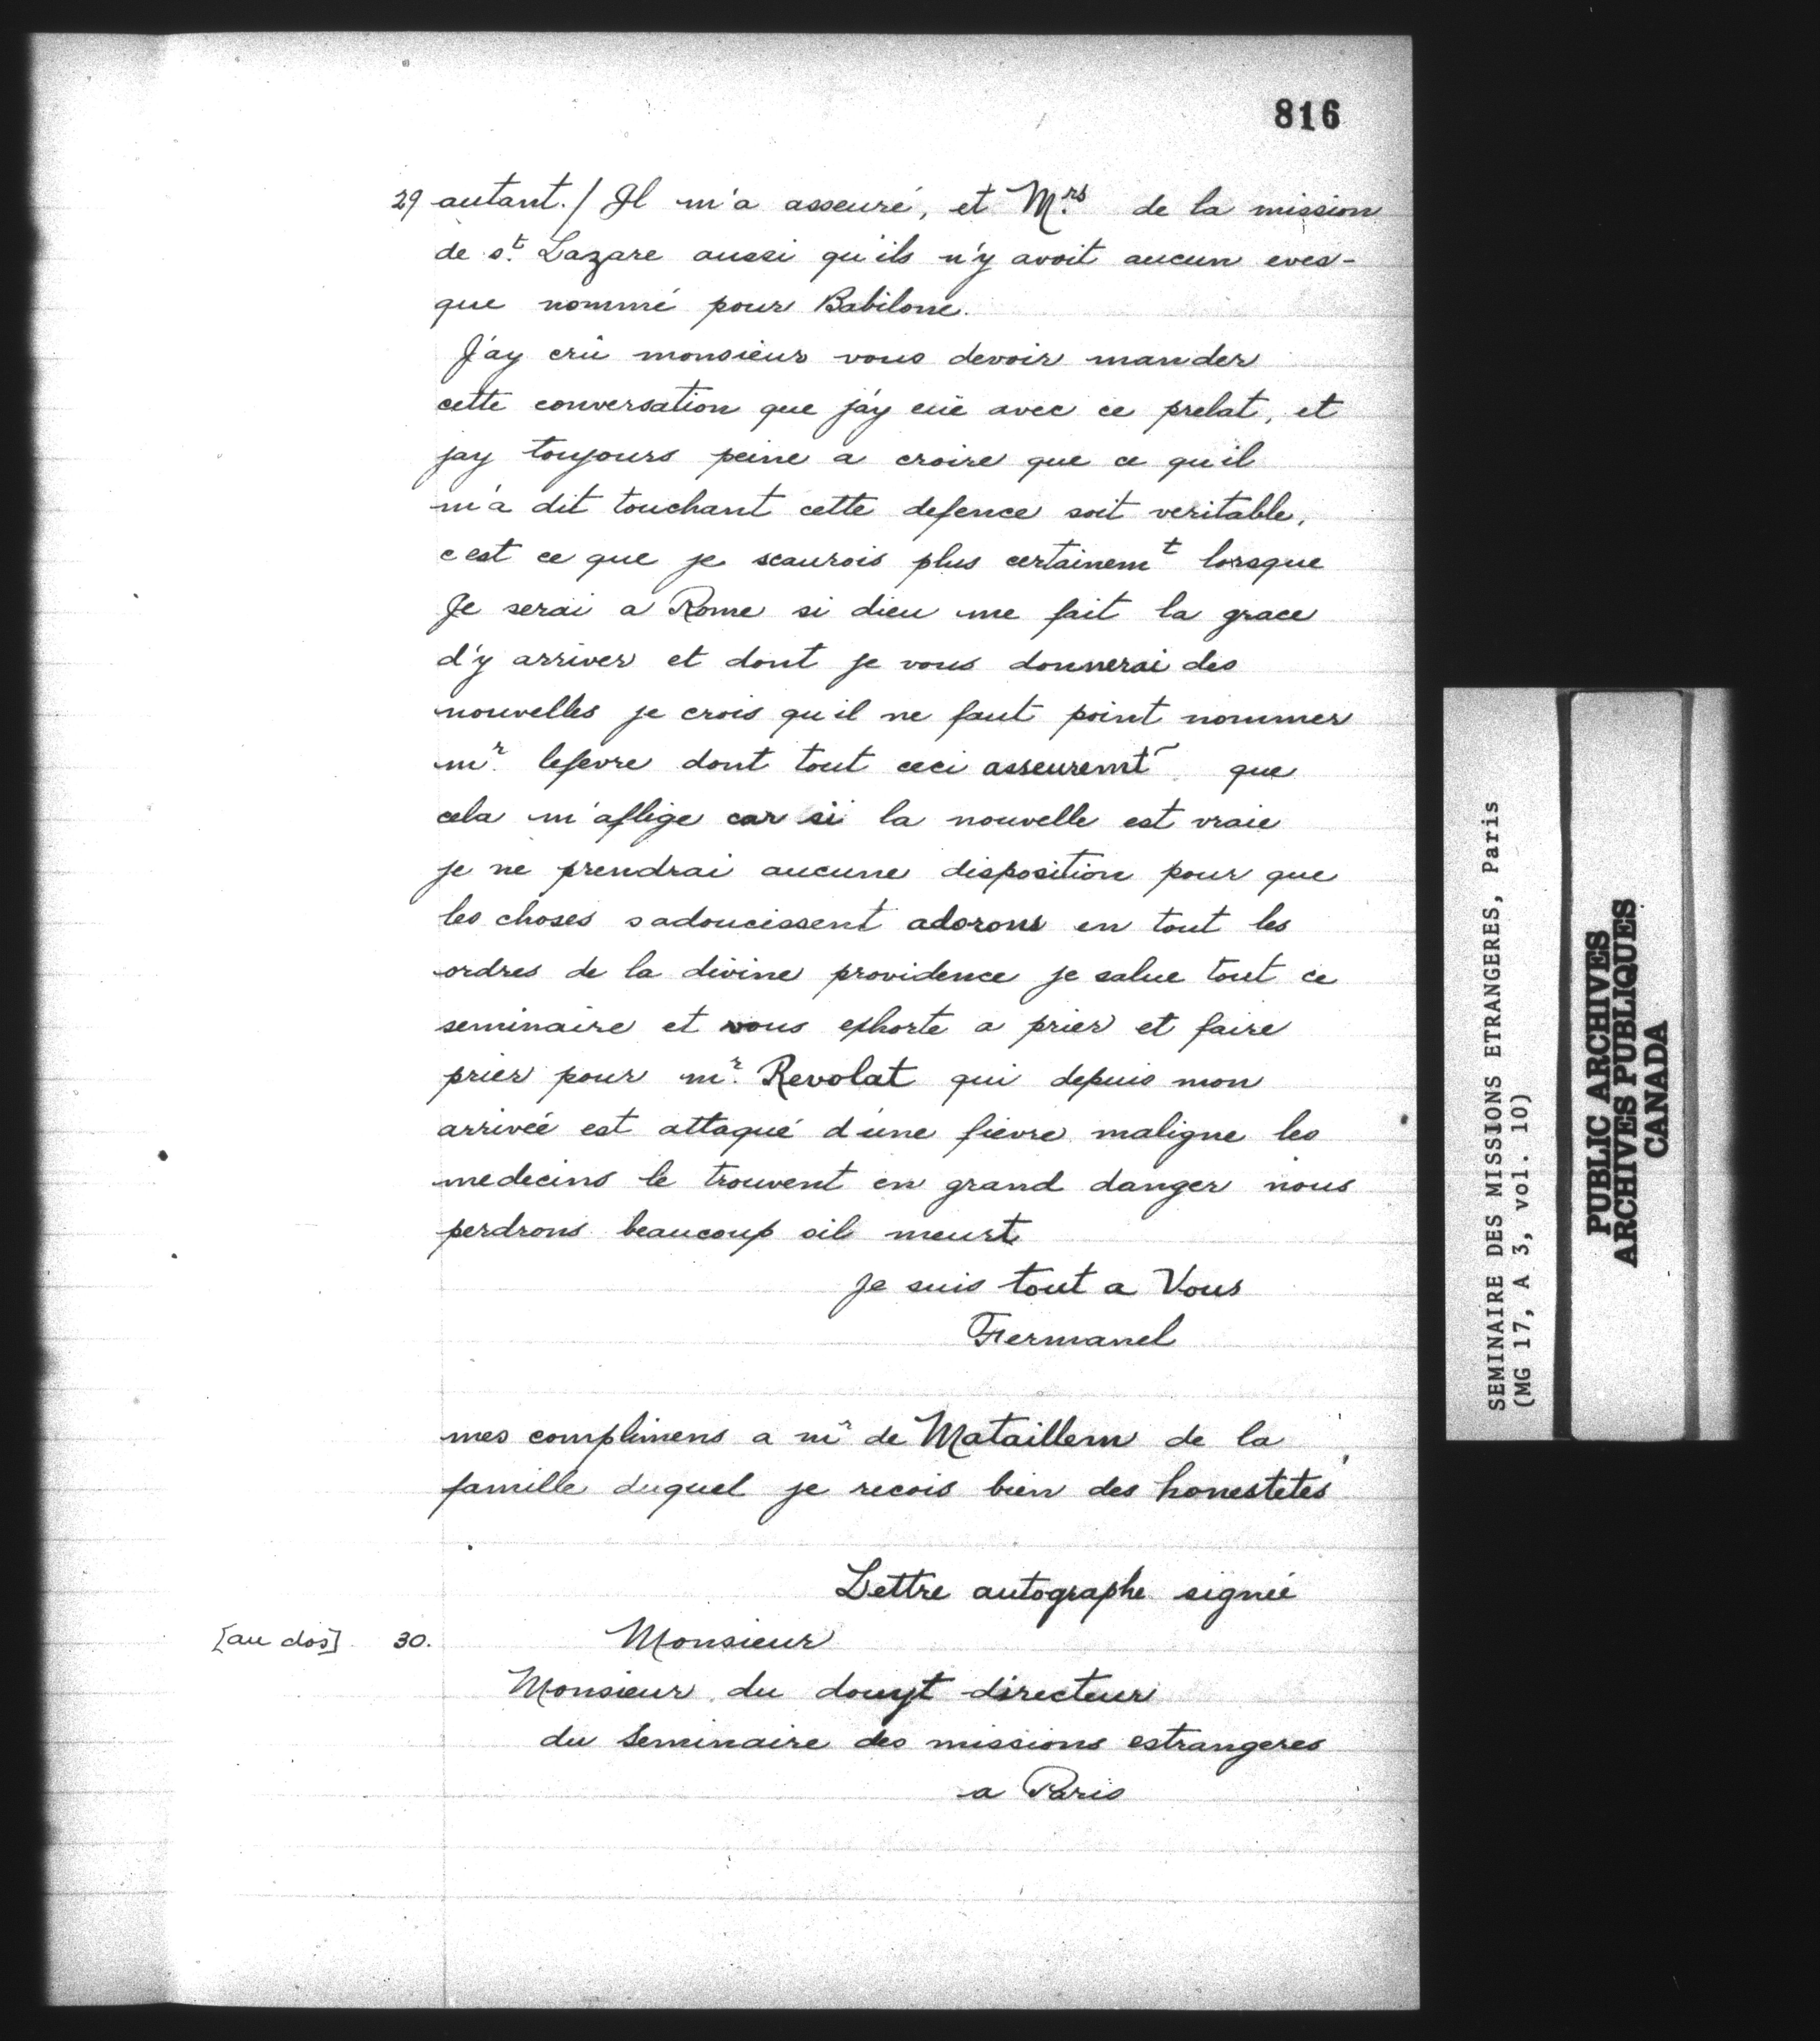 816
29 autant./ Il m'a asseuré, et M.rs de la mission
de s.t Lazare aussi qu'ils n'y avoit aucun eves-
que nommé pour Babilone.
J'ay crû monsieur vous devoir mander
cette conversation que j'ay eüe avec ce prelat, et
jay toujours peine a croire que ce qu'il
m'a dit touchant cette defence soit veritable,
c'est ce que je scaurois plus certainemt lorsque
Je serai a Rome si dieu me fait la grace
d'y arriver et dont je vous donnerai des
nouvelles je crois qu'il ne faut point nommer
mr. lefevre dont tout ceci asseuremt que
cela m'aflige car si la nouvelle est vraie
je ne prendrai aucune disposition pour que
les choses sadoucissent adorons en tout les
ordres de la divine providence je salue tout ce
seminaire et vous exhorte a prier et faire
prier pour mr. Revolat qui depuis mon
arrivée est attaqué d'une fievre maligne les
medecins le trouvent en grand danger nous
perdrons beaucoup sil meurt
Je suis tout a Vous
Fermanel
mes complimens a mr de Mataillem de la
famille duquel je recois bien des honestetes
Lettre autographe signée
[au dos] 30. Monsieur
Monsieur du douyt directeur
du Seminaire des missions estrangeres
a Paris
SEMINAIRE DES MISSIONS ETRANGERES, Paris
(MG 17, A 3, vol. 10)
PUBLIC ARCHIVES
ARCHIVES PUBLIQUES
CANADA